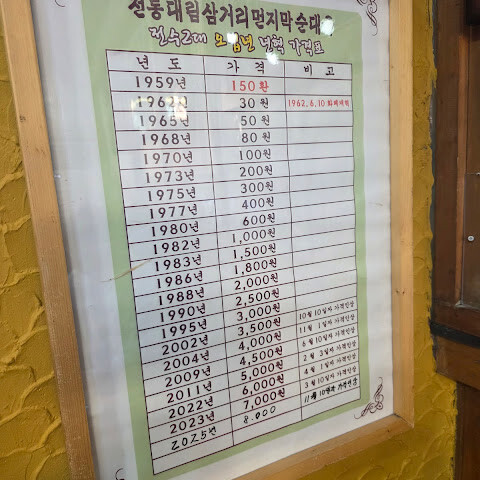 전통대림삼거리먼지막순대
전수2대 년혁 가격표
년 도 가 격 비 고
1959년 150환
1962년 30원 1962.6.10 화폐개혁
1965년 50원
1968년 80원
1970년 100원
1973년 200원
1975년 300원
1977년 400원
1980년 600원
1982년 1,000원
1983년 1,500원
1986년 1,800원
1988년 2,000원
1990년 2,500원
1995년 3,000원
2002년 3,500원 10월 10일자 가격인상
2004년 4,000원 11월 1일자 가격인상
2009년 4,500원 6월 10일자 가격인상
2011년 5,000원 2월 3일자 가격인상
2022년 6,000원 4월 1일자 가격인상
2023년 7,000원 3월 10일자 가격인상
2025년 8.000 11월 10일자 가격인상